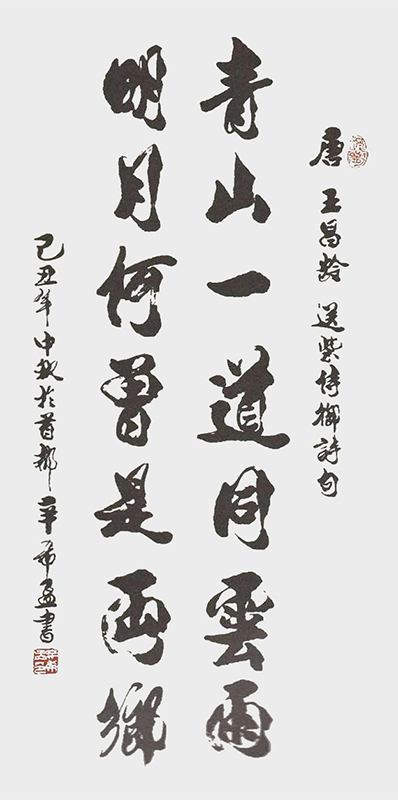 唐 王昌龄 送柴侍御詩句
青山一道同雲雨
明月何曾是兩鄉
己丑年中秋於首都 辛希孟書